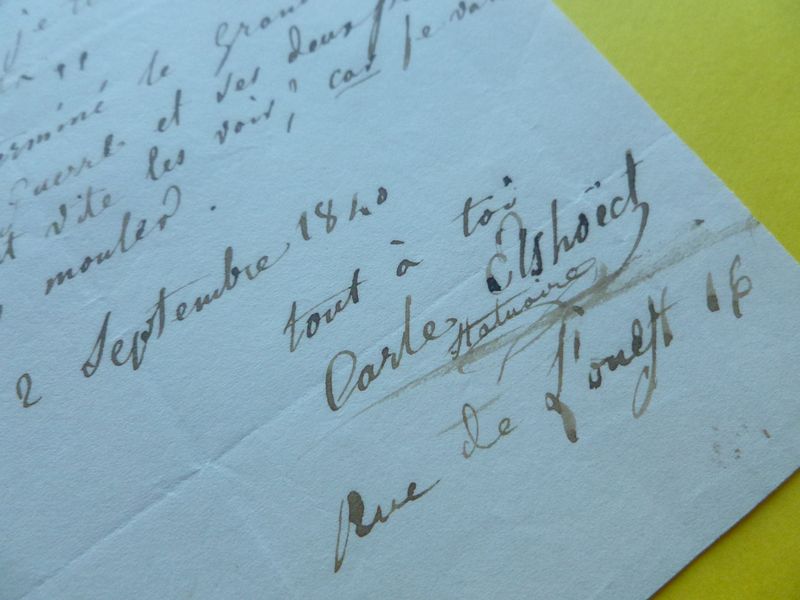 je
terminé le Grand
Guerre et ses deux
vite les voir, car je vais
mouler.
2 Septembre 1840
tout à toi
Carle Elshoëct
Statuaire
Rue de L'ouest 16